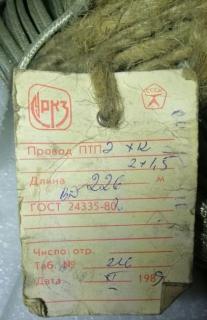 СССР
Провод ПТП2 ХК
2×1,5
Длина 226 м
ГОСТ 24335-80
Число отр.
Таб. № 216
Дата VI 1989